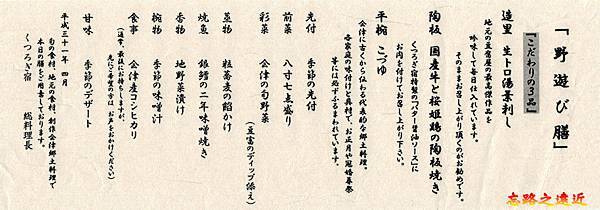 「野遊び膳」
「こだわりの3品」
造里 生トロ湯葉刺し
地元の豆腐屋の最高傑作品を
吟味して毎日仕入れています。
そのままお召し上がり頂くのがお勧めです。
陶板 国産牛と桜姫鶏の陶板焼き
くつろぎ宿特製の「バター醤油ソース」に
お肉を付けてお召し上がり下さい。
平椀 こづゆ
会津に古くから伝わる代表的な郷土料理。
各家庭の味付けと具材で、お正月や冠婚葬祭
等には必ずふるまわれています。
先付 季節の先付
前菜 八寸七点盛り
彩菜 会津の旬野菜
(豆富のディップ添え)
蒸物 粒蕎麦の餡かけ
焼魚 銀鱈の二年味噌焼き
香物 地野菜漬け
椀物 季節の味噌汁
食事 会津産コシヒカリ
(通常、最後にお持ちしますが、
先にご希望の方は、お声をおかけください)
甘味 季節のデザート
平成三十一年 四月
旬の食材、地元の食材、創作会津郷土料理で
本日の膳をご用意しております。
くつろぎ宿 総料理長
忘路之遠近